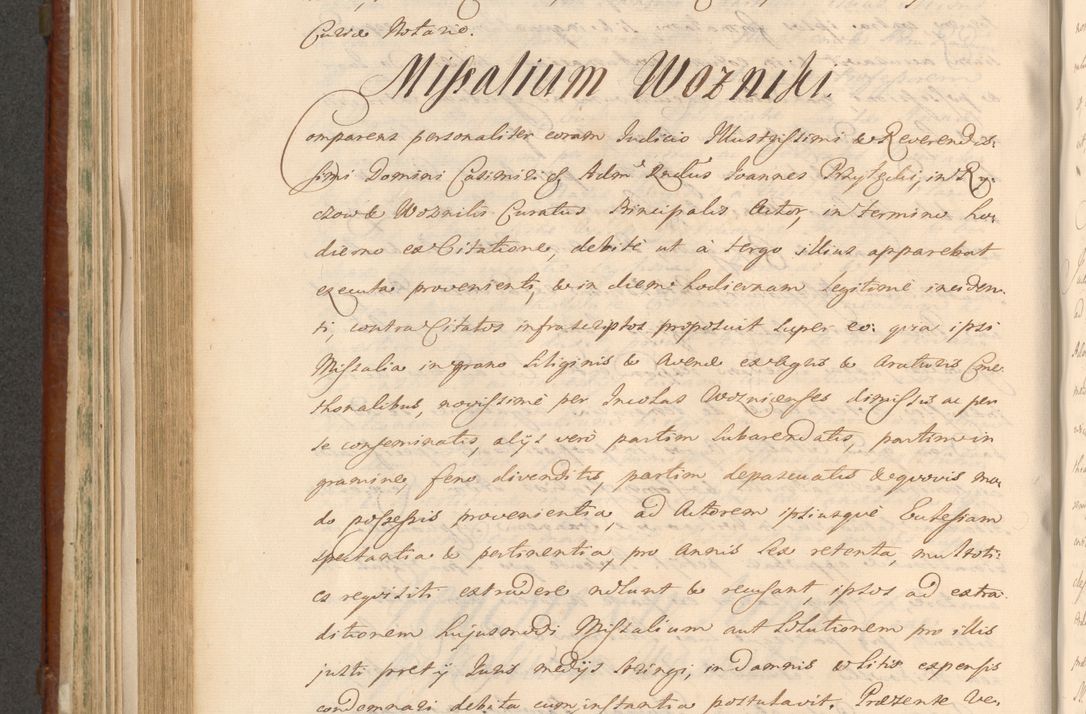 Curiæ Notario.
Missalium Wozniki.
Comparens personaliter coram Judicio Illustrissimi & Reverendis:
simi Domini Casimiri &, Admˢ Rndus Joannes Przyłęcki, in Ry:
czow & Wozniki Curatus Principalis Actor, in termino ho:
dierno ex Citatione, debitè ut à tergo illius apparebat
executa provenienti, & in diem hodiernam legitimè inciden:
ti, contra Citatos infrascriptos proposuit super eo: quia ipsi
Missalia in grano Siliginis & Avenæ ex Agris & Araturis Cme:
thonalibus, novissimè per Incolas Woznicenses dimissis ac per
se conseminatis, alijs verò partim subarendatis, partim in
gramine, feno divenditis, partim depascuatis & quovis mo:
do possessis provenientia, ad Actorem ipsiusquè Eclesiam
spectantia & pertinentia, pro Annis sex retenta, multoti:
es requisiti extradere nolunt & recusant, ipsos ad extra:
ditionem hujusmodi Missalium aut Solutionem pro illis
justi pretij Juris medijs stringi, in damnis & litis expensis
condemnari debita cum instantia postulavit. Præsente Ve: